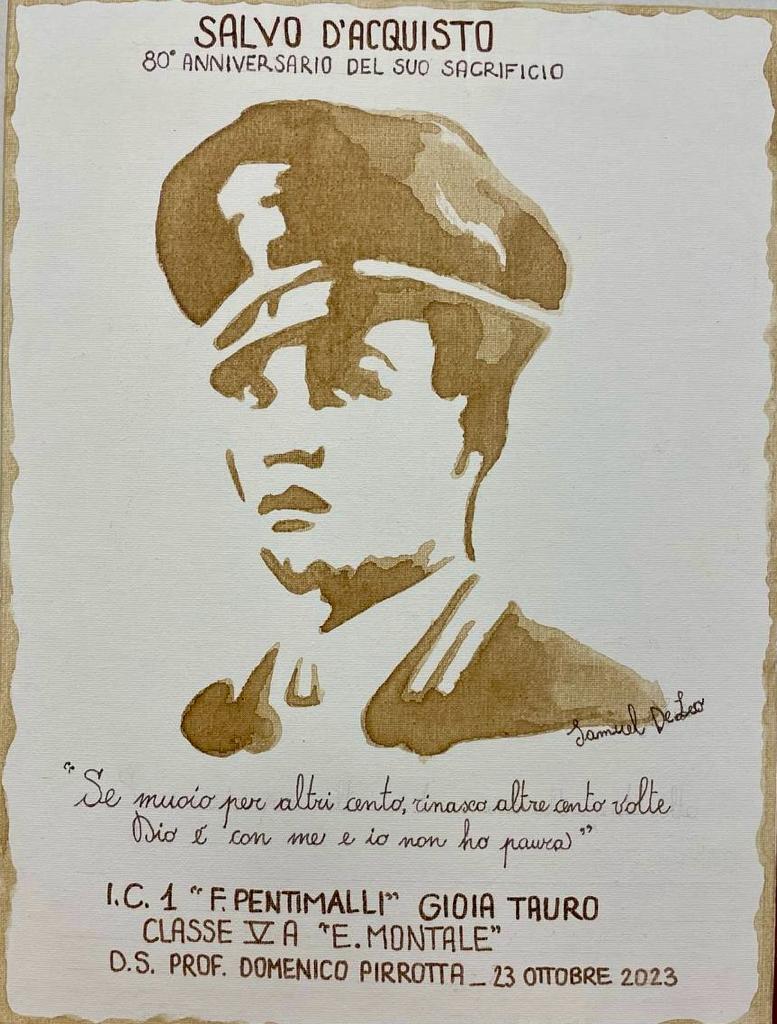 SALVO D'ACQUISTO
80° ANNIVERSARIO DEL SUO SACRIFICIO
Samuel De Leo
"Se muoio per altri cento, rinasco altre cento volte
Dio è con me e io non ho paura"
I.C. 1 "F. PENTIMALLI" GIOIA TAURO
CLASSE V A "E. MONTALE"
D.S. PROF. DOMENICO PIRROTTA_23 OTTOBRE 2023